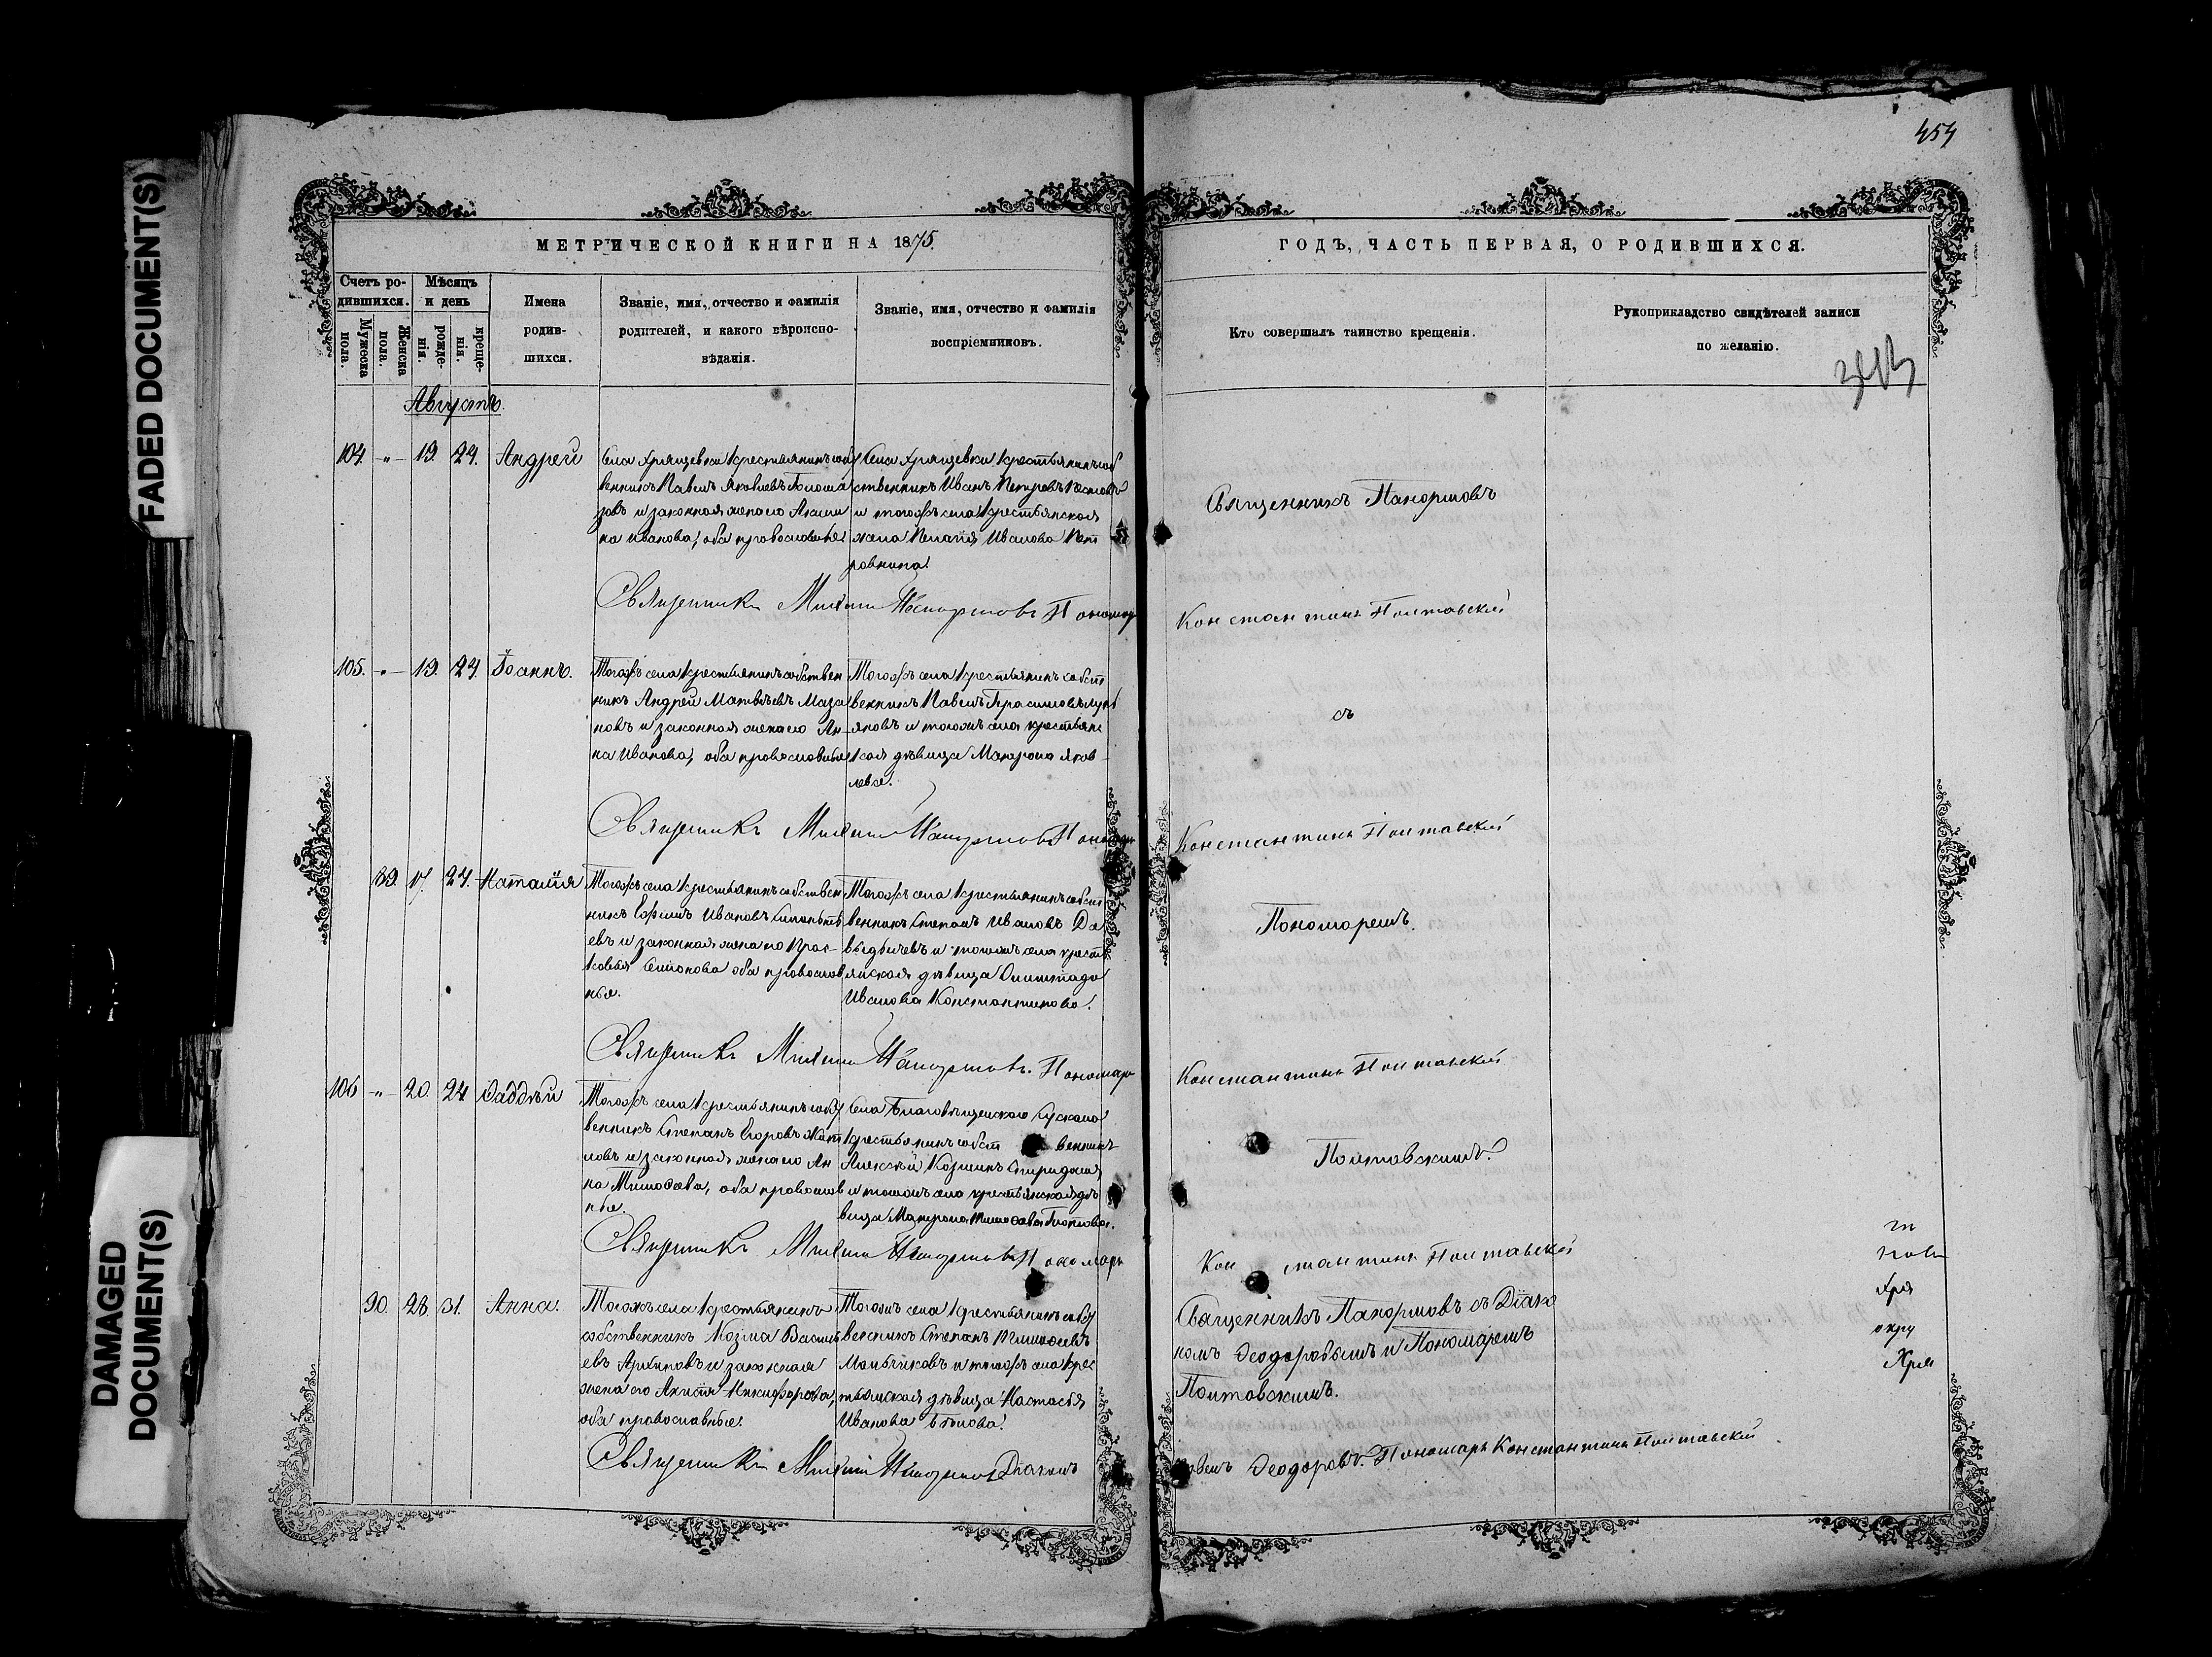 FADED DOCUMENT(S)
DAMAGED
DOCUMENT(S)
454
МЕТРИЧЕСКОЙ КНИГИ НА 1875.
ГОДЪ, ЧАСТЬ ПЕРВАЯ, О РОДИВШИХСЯ.
Счетъ ро-
дившихся.
Мужеска
пола.
Женска
пола.
Мѣсяцъ
и день
рожде-
нія.
креще-
нія.
Имена
родив-
шихся.
Званіе, имя, отчество и фамилія
родителей, и какого вѣроиспо-
вѣданія.
Званіе, имя, отчество и фамилія
воспріемниковъ.
Кто совершалъ таинство крещенія.
Рукоприкладство свидѣтелей записи
по желанію.
Августъ.
104. -"- 19. 24. Андрей
Села Хрящевки крестьянинъ соб
венникъ Павелъ Яковлевъ
зовъ и законная жена его Акили
на Иванова, оба православные
Села Хрящевки крестьянинъ соб
ственникъ Иванъ Петровъ
и тогожъ села крестьянская
жена Пелагія Иванова Пет
ровнина
Священникъ Панормовъ
Священникъ Михаилъ Панормовъ Пономарь
Константинъ Полтавскій
105. -"- 19. 24. Іоаннъ.
Тогожъ села крестьянинъ собствен
никъ Андрей Матвѣевъ Маза
новъ и законная жена его Ан-
на Иванова, оба православные
Тогожъ села крестьянинъ собст
венникъ Павелъ Герасимовъ
яновъ и тогожъ села крестьянс
кая дѣвица Макрона Яков
лева.
съ
Священникъ Михаилъ Панормовъ Пономарь
Константинъ Полтавскій
89. 17. 24. Наталія
Тогожъ села крестьянинъ собствен
никъ Ефимъ Ивановъ
евъ и законная жена его Прас-
ковья Симонова оба православ
ные.
Тогожъ села крестьянинъ собст
венникъ Степанъ Ивановъ Да
выдычевъ и тогожъ села кресть
янская дѣвица Олимпіада
Иванова Константинова.
Пономаремъ.
Священникъ Михаилъ Панормовъ. Пономарь
Константинъ Полтавскій
106 -"- 20. 24 Фаддѣй
Тогожъ села крестьянинъ собст
венникъ Степанъ Егоровъ
ловъ и законная жена его Ан
на Тимофѣева, оба православ
ные.
Села Благовѣщенскаго Сускана
крестьянинъ собст венникъ
Алексѣй Козминъ
и тогожъ села крестьянская дѣ
вица Макрона Тимофѣева
Полтавскимъ.
Священникъ Михаилъ Панормовъ Пономарь
Кон стантинъ Полтавскій
90. 28. 31. Анна.
Тогожъ села крестьянинъ
собственникъ Козма Василь
евъ Архиповъ и законная
жена его Акилія Никифорова,
оба православные.
Тогожъ села крестьянинъ собст
венникъ Степанъ Тимофѣевъ
Мальчиковъ и тогожъ села крес
тьянская дѣвица Настасія
Иванова Бѣлова.
Священникъ Панормовъ съ Діако
номъ Ѳеодоровымъ и Пономаремъ
Полтавскимъ.
Священникъ Михаилъ Панормовъ Діаконъ
Павелъ Ѳеодоровъ. Пономарь Константинъ Полтавскій